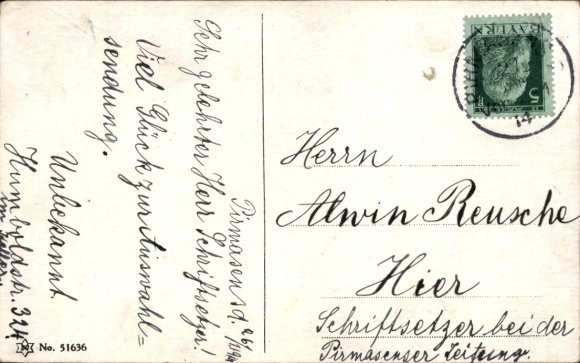 Pirmasens d.
Sehr geehrter Herr Schriftsetzer!
Viel Glück zur Auswahl=
sendung.
Unbekannt
Humboldstr. 324.
No. 51636
BAYERN
5
14
Herrn
Alwin Reusche
Hier
Schriftsetzer bei der
Pirmasenser Zeitung.